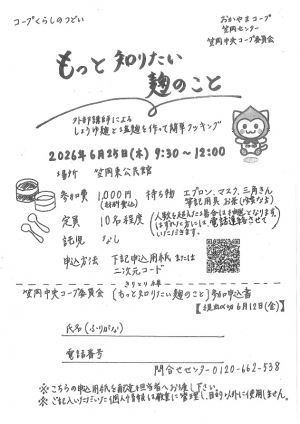 コープくらしのつどい
おかやまコープ
笠岡センター
笠岡中央コープ委員会
もっと知りたい
麹のこと
外部講師による
しょうゆ麹と塩麹を作って簡単クッキング
2026年6月25日(木) 9:30~12:00
場所 笠岡東公民館
参加費 1,000円
(材料費込)
持ち物 エプロン、マスク、三角きん
筆記用具 お茶(水など)
定員 10名程度
(人数を超えた場合は抽選となります
はずれた方には、電話連絡させて
いただきます。
託児 なし
申込方法 下記申込用紙または
二次元コード
きりとり線
笠岡中央コープ委員会 〔もっと知りたい麹のこと〕参加申込書
【提出〆切 6月12日(金)】
氏名(ふりがな)
電話番号
問合せセンター 0120-662-538
※こちらの申込用紙を配達担当者へお渡し下さい。
※ご記入いただいた個人情報は厳重に管理し、目的以外に使用しません。